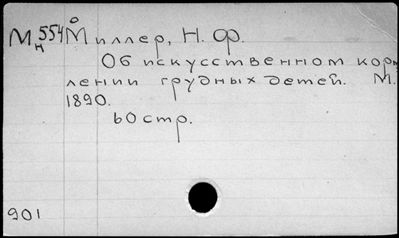 Мн 554 Миллер, Н. Ф.
Об искусственном корм
лении грудных детей. М.
1890.
60 стр.
901